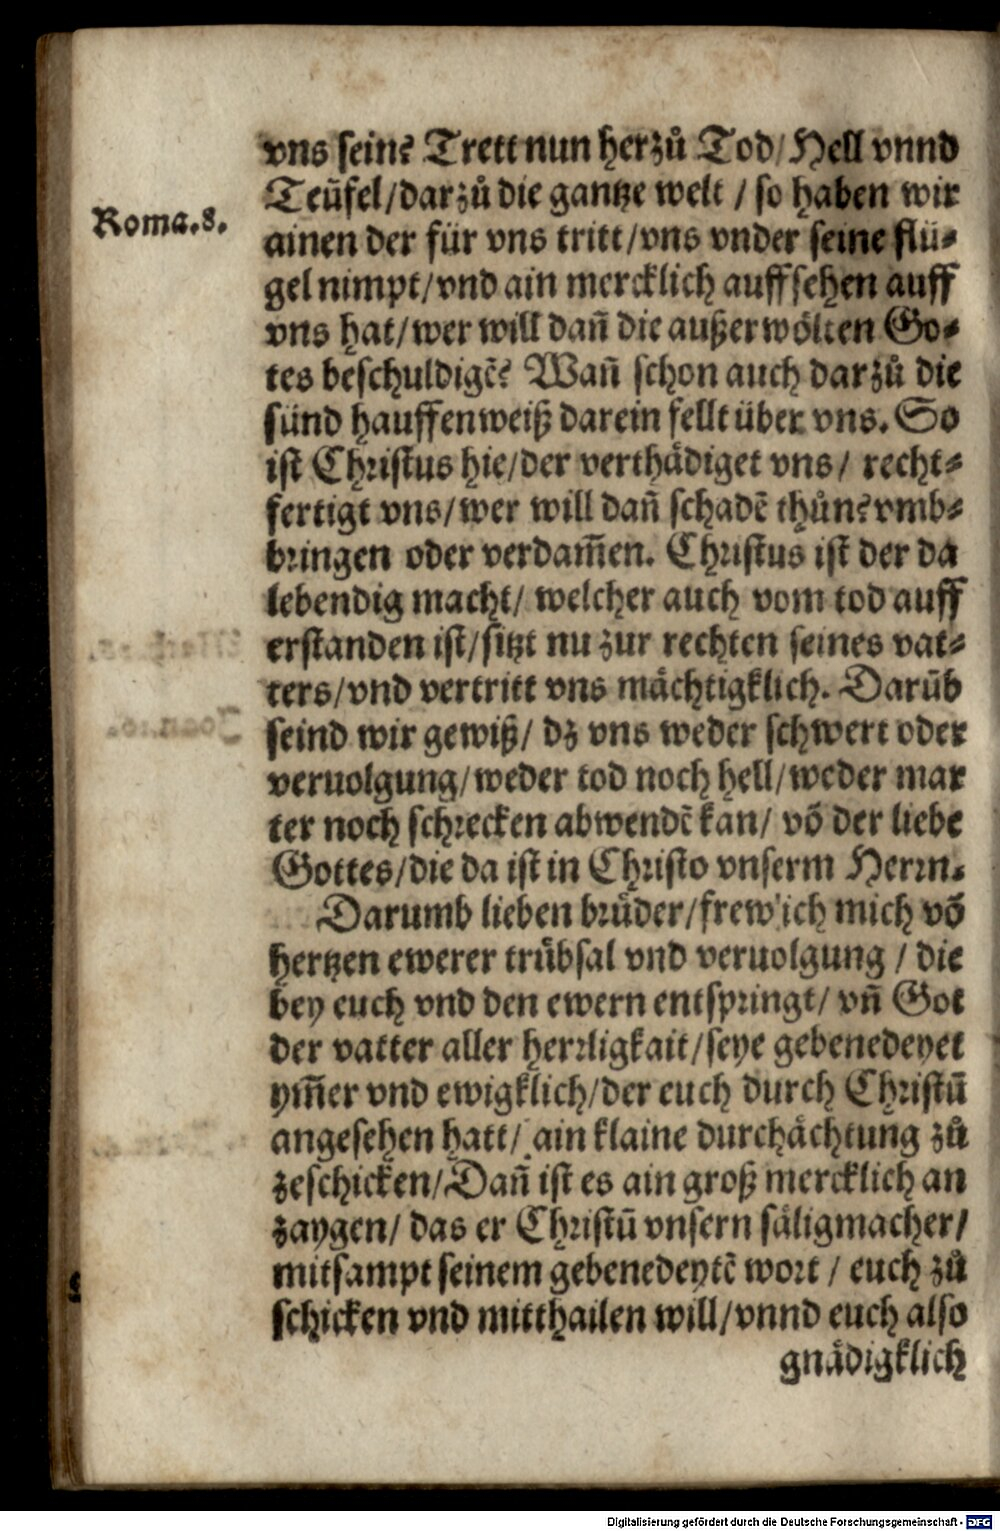 vns sein? Trett nun herzů Tod/ Hell vnnd
Teüfel/ darzů die gantze welt / so haben wir
Roma.8.
ainen der für vns tritt/ vns vnder seine flü⸗
gel nimpt/ vnd ain mercklich auffsehen auff
vns hat/ wer will dañ die außerwölten Go⸗
tes beschuldigẽ? Wañ schon auch darzů die
sünd hauffenweiß darein fellt über vns. So
ist Christus hie/ der verthädiget vns/ recht⸗
fertigt vns/ wer will dañ schadẽ thůn? vmb⸗
bringen oder verdam̃en. Christus ist der da
lebendig macht/ welcher auch vom tod auff
erstanden ist/ sitzt nu zur rechten seines vat⸗
ters/ vnd vertritt vns mächtigklich. Darũb
seind wir gewiß/ dz vns weder schwert oder
veruolgung/ weder tod noch hell/ weder mar
ter noch schrecken abwendẽ kan/ võ der liebe
Gottes/ die da ist in Christo vnserm Herrn.
Darumb lieben brůder/ frew ich mich võ
hertzen ewerer trůbsal vnd veruolgung / die
bey euch vnd den ewern entspringt/ vñ Got
der vatter aller herrligkait/ seye gebenedeyet
ym̃er vnd ewigklich/ der euch durch Christũ
angesehen hatt/ ain klaine durchächtung zů
zeschicken/ Dañ ist es ain groß mercklich an
zaygen/ das er Christũ vnsern säligmacher/
mitsampt seinem gebenedeytẽ wort / euch zů
schicken vnd mitthailen will/ vnnd euch also
gnädigklich
Digitalisierung gefördert durch die Deutsche Forschungsgemeinschaft - DFG